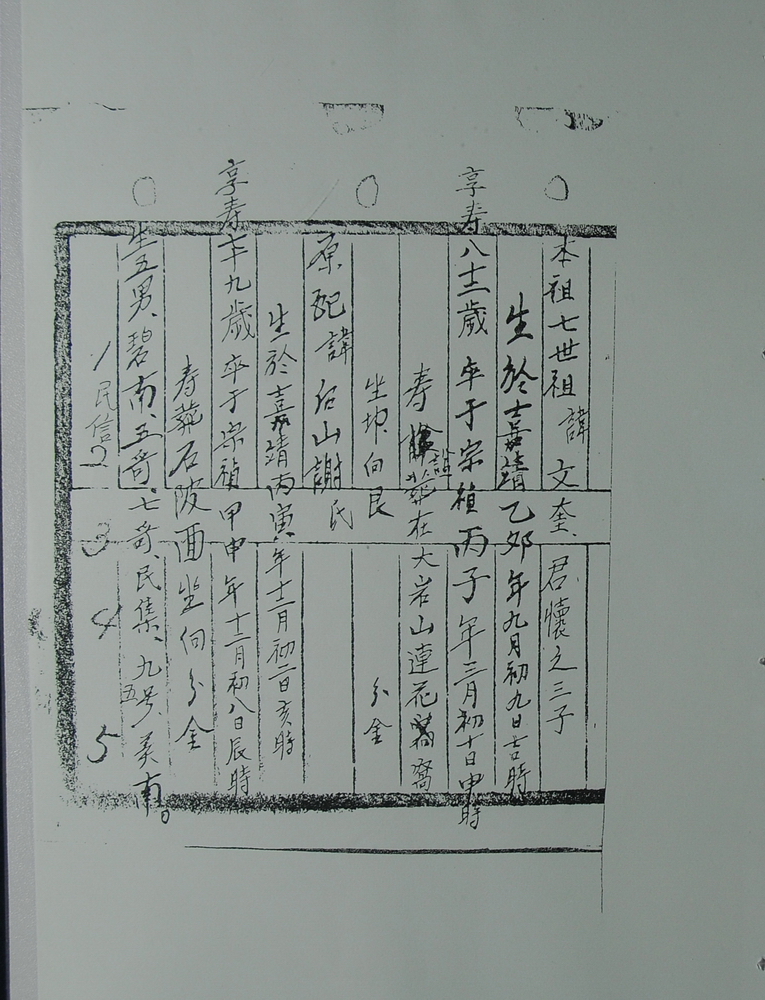 本祖七世祖 諱 文奎 君懷之三子
生於嘉靖乙卯年九月初九日吉時
享寿八十二歲 卒于宗禎丙子年三月初十日申時
寿 葬在大岩山連花窩
坐坤向艮 分金
原配諱 石山謝氏
生於嘉靖丙寅年十二月初二日亥時
享寿七十九歲 卒于宗禎甲申年十二月初八日辰時
寿葬石陂面坐向分金
生五男、碧南、五奇、七奇、民集、九号、美南。
1民信2 3 4 5 五